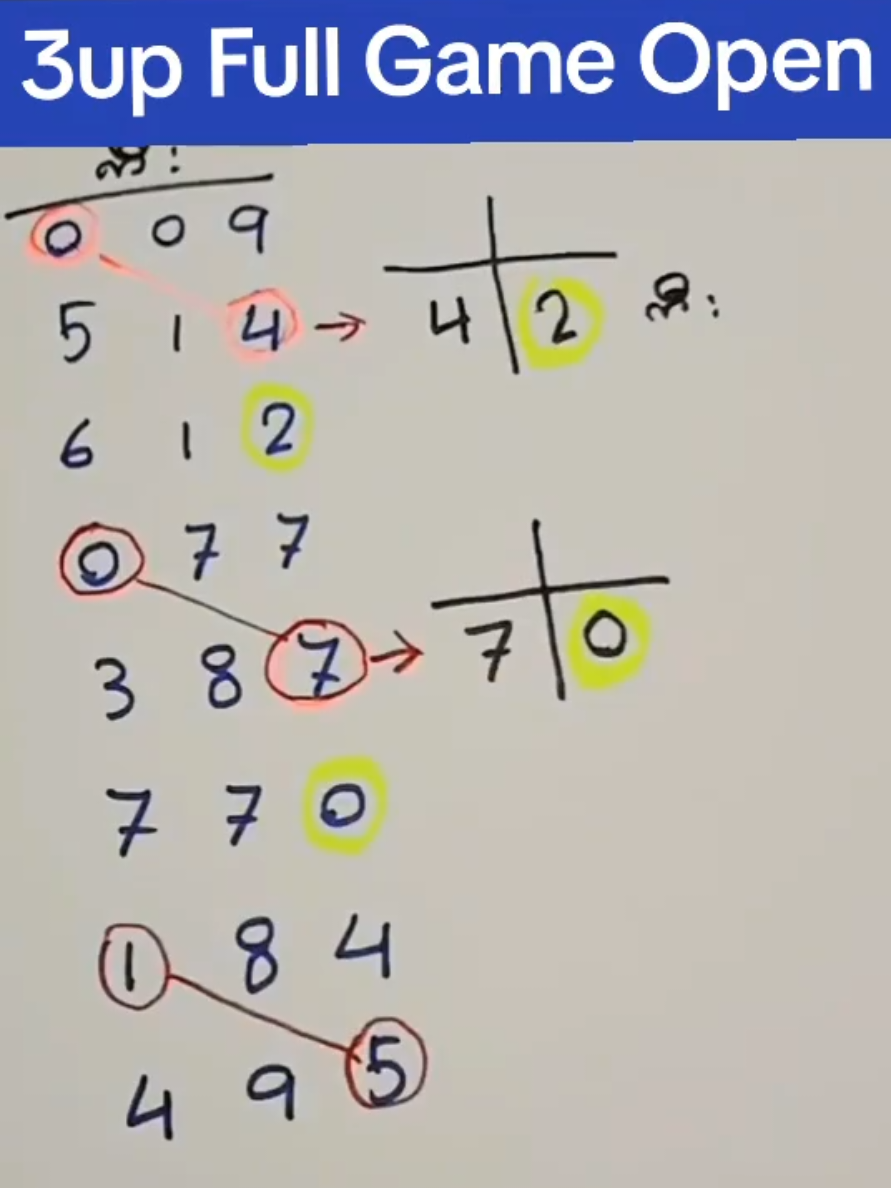 3up Full Game Open
0 0 9
5 1 4 → 4 2
6 1 2
0 7 7
3 8 7 → 7 0
7 7 0
1 8 4
4 9 5